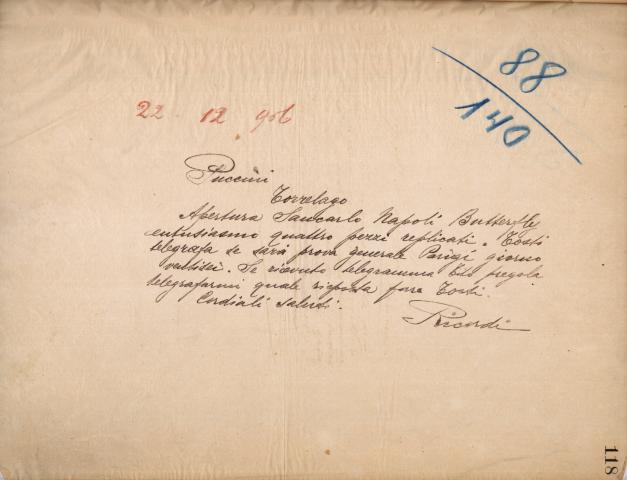 88
140
22 12 906
Puccini
Torrelago
Apertura Sancarlo Napoli Butterfly
entusiasmo quattro pezzi replicati. Tosti
telegrafa se sarà prova generale Parigi giorno
ventisei. Se ricevuto telegramma Tito pregola
telegrafarmi quale risposta fare Tosti.
Cordiali saluti.
Ricordi
118